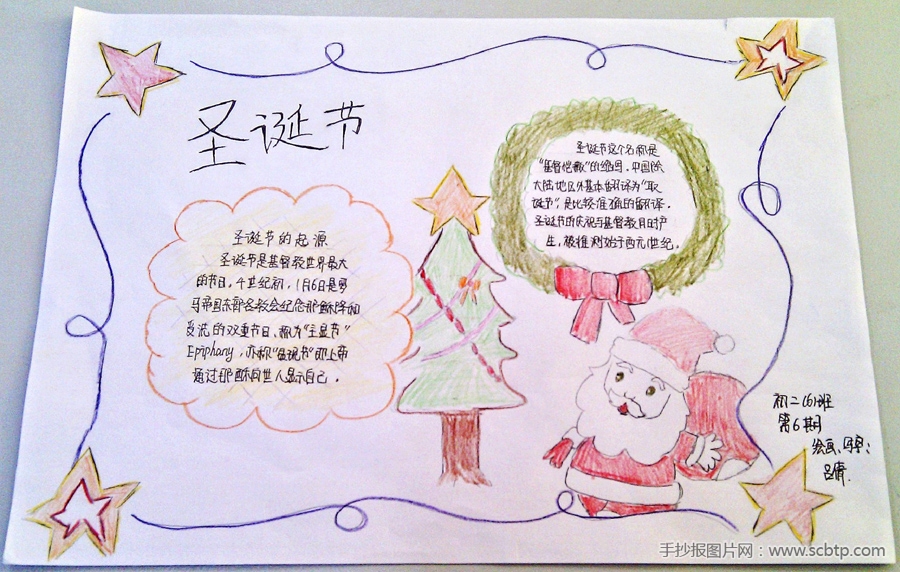 圣诞节
圣诞节的起源
圣诞节是基督教世界最大
的节日，4世纪初，1月6日是罗
马帝国东部各教会纪念耶稣降和
受洗的双重节日、称为"主显节"
Epiphany，亦称"显现节"即上帝
通过耶稣向世人显示自己。
圣诞节这个名称是
"基督弥撒"的缩写。中国除
大陆地区外基本翻译为"耶
诞节"，是比较准确的翻译。
圣诞节的庆祝与基督教同时产
生，被推测始于西元1世纪。
初二(6)班
第6期
绘画、写字：
吕倩.
手抄报图片网：www.scbtp.com